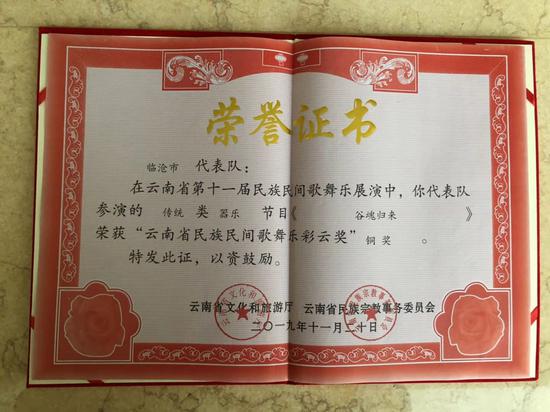 荣誉证书
临沧市 代表队：
在云南省第十一届民族民间歌舞乐展演中，你代表队
参演的 传统 类 器乐 节目《 谷魂归来 》
荣获“云南省民族民间歌舞乐彩云奖” 铜奖 。
特发此证，以资鼓励。
云南省文化和旅游厅 云南省民族宗教事务委员会
二〇一九年十一月二十日